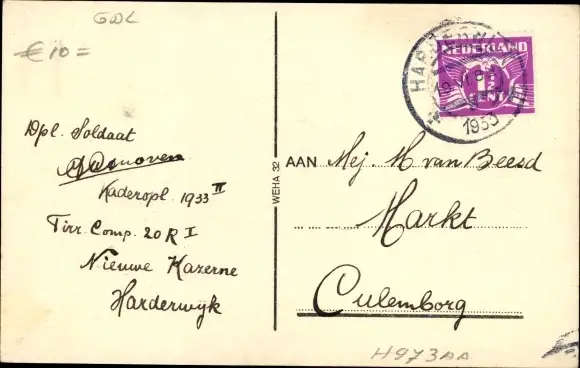 GDL
€ 10 =
Dpl. Soldaat
Kaderopl. 1933 II
Tirr. Comp. 20 R I
Nieuwe Kazerne
Harderwijk
WEHA 32
HARDERWIJK
1933
NEDERLAND
1½
CENT
AAN Mej. H van Beesd
Markt
Culemborg
H973AA